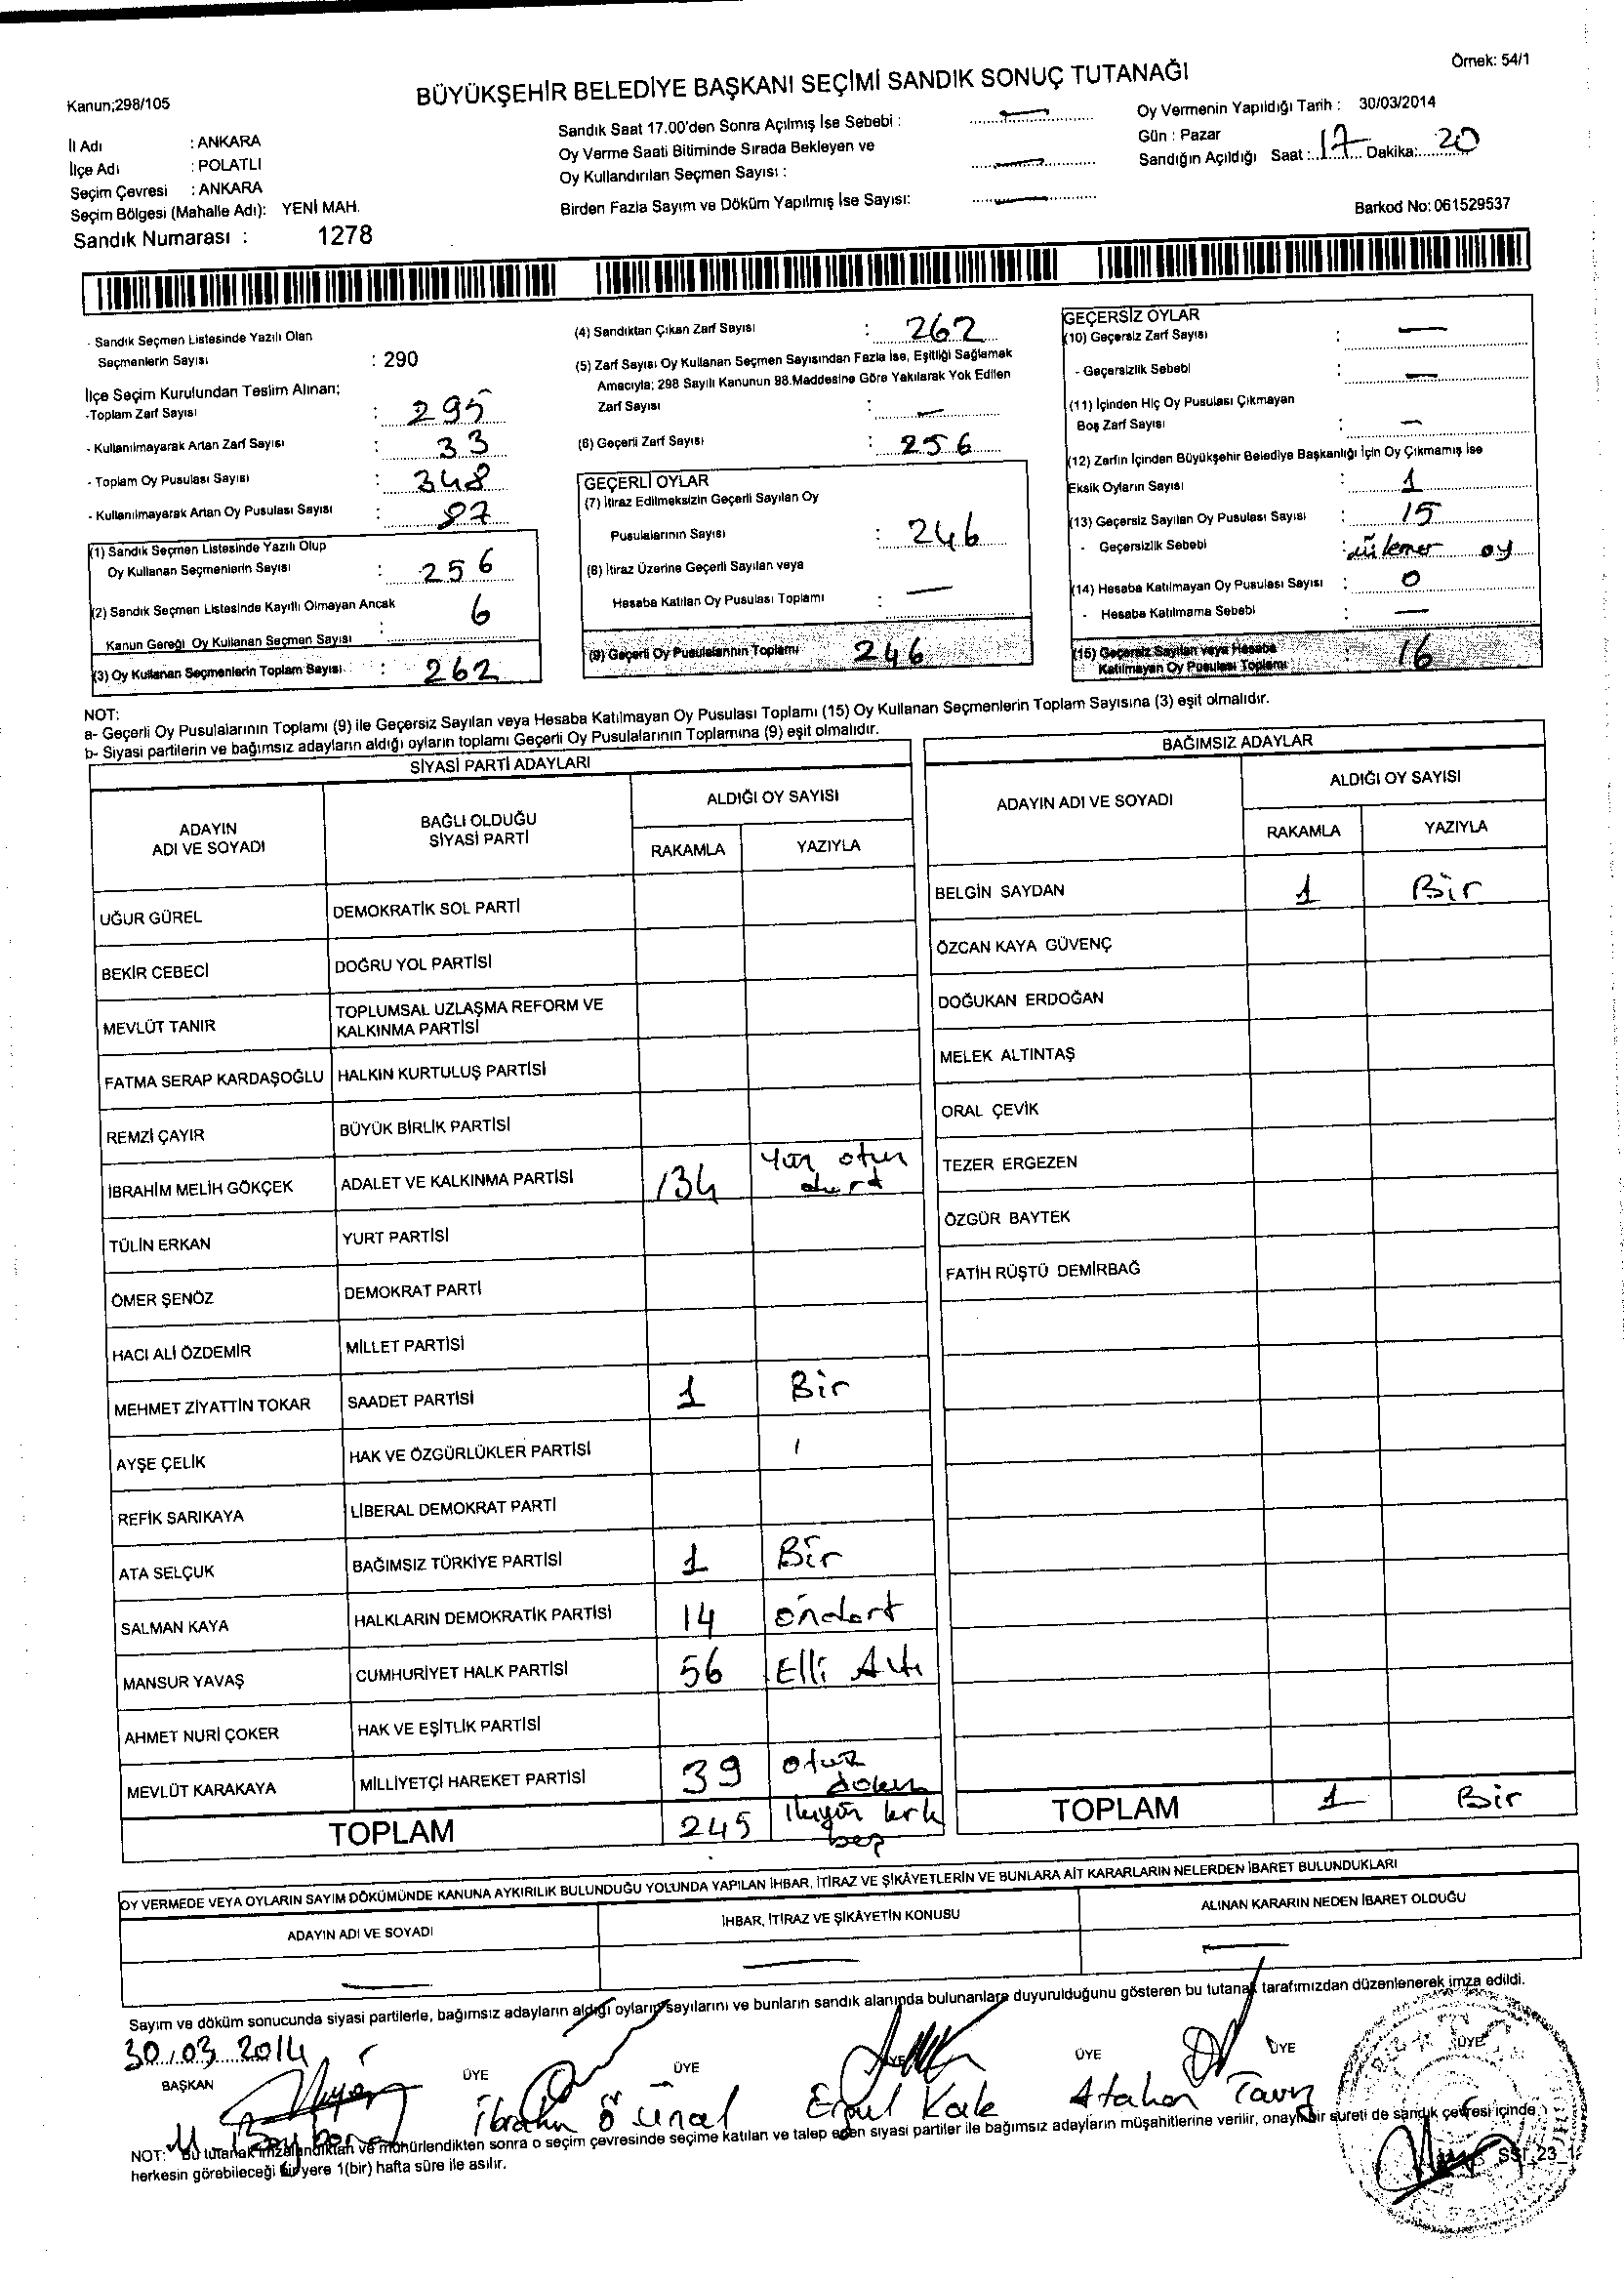 Örnek: 54/1
BÜYÜKŞEHİR BELEDİYE BAŞKANI SEÇİMİ SANDIK SONUÇ TUTANAĞI
Kanun;298/105
İl Adı : ANKARA
İlçe Adı : POLATLI
Seçim Çevresi : ANKARA
Seçim Bölgesi (Mahalle Adı): YENİ MAH.
Sandık Numarası : 1278
Sandık Saat 17.00'den Sonra Açılmış İse Sebebi : —
Oy Verme Saati Bitiminde Sırada Bekleyen ve
Oy Kullandırılan Seçmen Sayısı : —
Birden Fazla Sayım ve Döküm Yapılmış İse Sayısı: —
Oy Vermenin Yapıldığı Tarih : 30/03/2014
Gün : Pazar
Sandığın Açıldığı Saat : 17 Dakika: 20
Barkod No: 061529537
- Sandık Seçmen Listesinde Yazılı Olan
Seçmenlerin Sayısı : 290
İlçe Seçim Kurulundan Teslim Alınan;
-Toplam Zarf Sayısı : 295
- Kullanılmayarak Artan Zarf Sayısı : 33
- Toplam Oy Pusulası Sayısı : 348
- Kullanılmayarak Artan Oy Pusulası Sayısı : 87
(1) Sandık Seçmen Listesinde Yazılı Olup
Oy Kullanan Seçmenlerin Sayısı : 256
(2) Sandık Seçmen Listesinde Kayıtlı Olmayan Ancak
Kanun Gereği Oy Kullanan Seçmen Sayısı : 6
(3) Oy Kullanan Seçmenlerin Toplam Sayısı : 262
(4) Sandıktan Çıkan Zarf Sayısı : 262
(5) Zarf Sayısı Oy Kullanan Seçmen Sayısından Fazla İse, Eşitliği Sağlamak
Amacıyla; 298 Sayılı Kanunun 98.Maddesine Göre Yakılarak Yok Edilen
Zarf Sayısı : —
(6) Geçerli Zarf Sayısı : 256
GEÇERLİ OYLAR
(7) İtiraz Edilmeksizin Geçerli Sayılan Oy
Pusulalarının Sayısı : 246
(8) İtiraz Üzerine Geçerli Sayılan veya
Hesaba Katılan Oy Pusulası Toplamı : —
(9) Geçerli Oy Pusulalarının Toplamı 246
GEÇERSİZ OYLAR
(10) Geçersiz Zarf Sayısı : —
- Geçersizlik Sebebi : —
(11) İçinden Hiç Oy Pusulası Çıkmayan
Boş Zarf Sayısı : —
(12) Zarfın İçinden Büyükşehir Belediye Başkanlığı İçin Oy Çıkmamış İse
Eksik Oyların Sayısı : 1
(13) Geçersiz Sayılan Oy Pusulası Sayısı : 15
- Geçersizlik Sebebi : oy
(14) Hesaba Katılmayan Oy Pusulası Sayısı : 0
- Hesaba Katılmama Sebebi : —
(15) Geçersiz Sayılan veya Hesaba
Katılmayan Oy Pusulası Toplamı : 16
NOT:
a- Geçerli Oy Pusulalarının Toplamı (9) ile Geçersiz Sayılan veya Hesaba Katılmayan Oy Pusulası Toplamı (15) Oy Kullanan Seçmenlerin Toplam Sayısına (3) eşit olmalıdır.
b- Siyasi partilerin ve bağımsız adayların aldığı oyların toplamı Geçerli Oy Pusulalarının Toplamına (9) eşit olmalıdır.
SİYASİ PARTİ ADAYLARI
ADAYIN ADI VE SOYADI BAĞLI OLDUĞU SİYASİ PARTİ ALDIĞI OY SAYISI
RAKAMLA YAZIYLA
UĞUR GÜREL DEMOKRATİK SOL PARTİ
BEKİR CEBECİ DOĞRU YOL PARTİSİ
MEVLÜT TANIR TOPLUMSAL UZLAŞMA REFORM VE KALKINMA PARTİSİ
FATMA SERAP KARDAŞOĞLU HALKIN KURTULUŞ PARTİSİ
REMZİ ÇAYIR BÜYÜK BİRLİK PARTİSİ
İBRAHİM MELİH GÖKÇEK ADALET VE KALKINMA PARTİSİ 134 Yüz otuz dört
TÜLİN ERKAN YURT PARTİSİ
ÖMER ŞENÖZ DEMOKRAT PARTİ
HACI ALİ ÖZDEMİR MİLLET PARTİSİ
MEHMET ZİYATTİN TOKAR SAADET PARTİSİ 1 Bir
AYŞE ÇELİK HAK VE ÖZGÜRLÜKLER PARTİSİ
REFİK SARIKAYA LİBERAL DEMOKRAT PARTİ
ATA SELÇUK BAĞIMSIZ TÜRKİYE PARTİSİ 1 Bir
SALMAN KAYA HALKLARIN DEMOKRATİK PARTİSİ 14 ondört
MANSUR YAVAŞ CUMHURİYET HALK PARTİSİ 56 Elli Altı
AHMET NURİ ÇOKER HAK VE EŞİTLİK PARTİSİ
MEVLÜT KARAKAYA MİLLİYETÇİ HAREKET PARTİSİ 39 otuz dokuz
TOPLAM 245 ikiyüz kırk beş
BAĞIMSIZ ADAYLAR
ADAYIN ADI VE SOYADI ALDIĞI OY SAYISI
RAKAMLA YAZIYLA
BELGİN SAYDAN 1 Bir
ÖZCAN KAYA GÜVENÇ
DOĞUKAN ERDOĞAN
MELEK ALTINTAŞ
ORAL ÇEVİK
TEZER ERGEZEN
ÖZGÜR BAYTEK
FATİH RÜŞTÜ DEMİRBAĞ
TOPLAM 1 Bir
OY VERMEDE VEYA OYLARIN SAYIM DÖKÜMÜNDE KANUNA AYKIRILIK BULUNDUĞU YOLUNDA YAPILAN İHBAR, İTİRAZ VE ŞİKÂYETLERİN VE BUNLARA AİT KARARLARIN NELERDEN İBARET BULUNDUKLARI
ADAYIN ADI VE SOYADI İHBAR, İTİRAZ VE ŞİKÂYETİN KONUSU ALINAN KARARIN NEDEN İBARET OLDUĞU
— — —
Sayım ve döküm sonucunda siyasi partilerle, bağımsız adayların aldığı oyların sayılarını ve bunların sandık alanında bulunanlara duyurulduğunu gösteren bu tutanak tarafımızdan düzenlenerek imza edildi.
30.03.2014
BAŞKAN ÜYE ÜYE ÜYE ÜYE ÜYE ÜYE
İbrahim Ö ünal Kale Atahan
NOT: Bu tutanak imzalandıktan ve mühürlendikten sonra o seçim çevresinde seçime katılan ve talep eden siyasi partiler ile bağımsız adayların müşahitlerine verilir, onaylı bir sureti de sandık çevresi içinde
herkesin görebileceği bir yere 1(bir) hafta süre ile asılır.